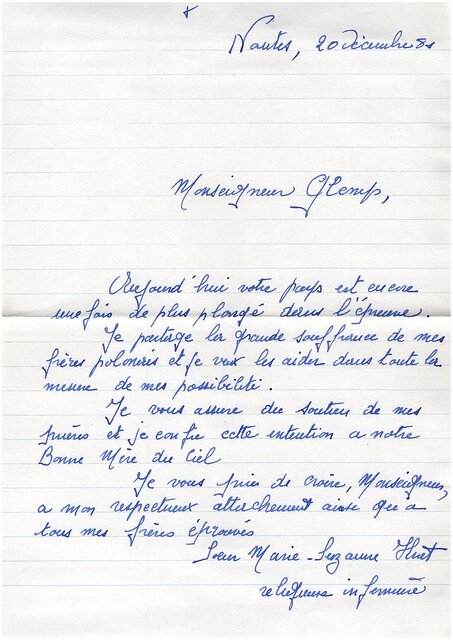 +
Nantes, 20 décembre 81
Monseigneur Glemp,
Aujourd'hui votre pays est encore
une fois de plus plongé dans l'épreuve.
Je partage la grande souffrance de mes
frères polonais et je veux les aider dans toute la
mesure de mes possibilité.
Je vous assure du soutien de mes
prières et je confie cette intention a notre
Bonne Mère du Ciel
Je vous prie de croire, Monseigneur,
a mon respectueux attachement ainsi qu'a
tous mes frères éprouvés
Soeur Marie-Suzanne Huet
religieuse infirmière